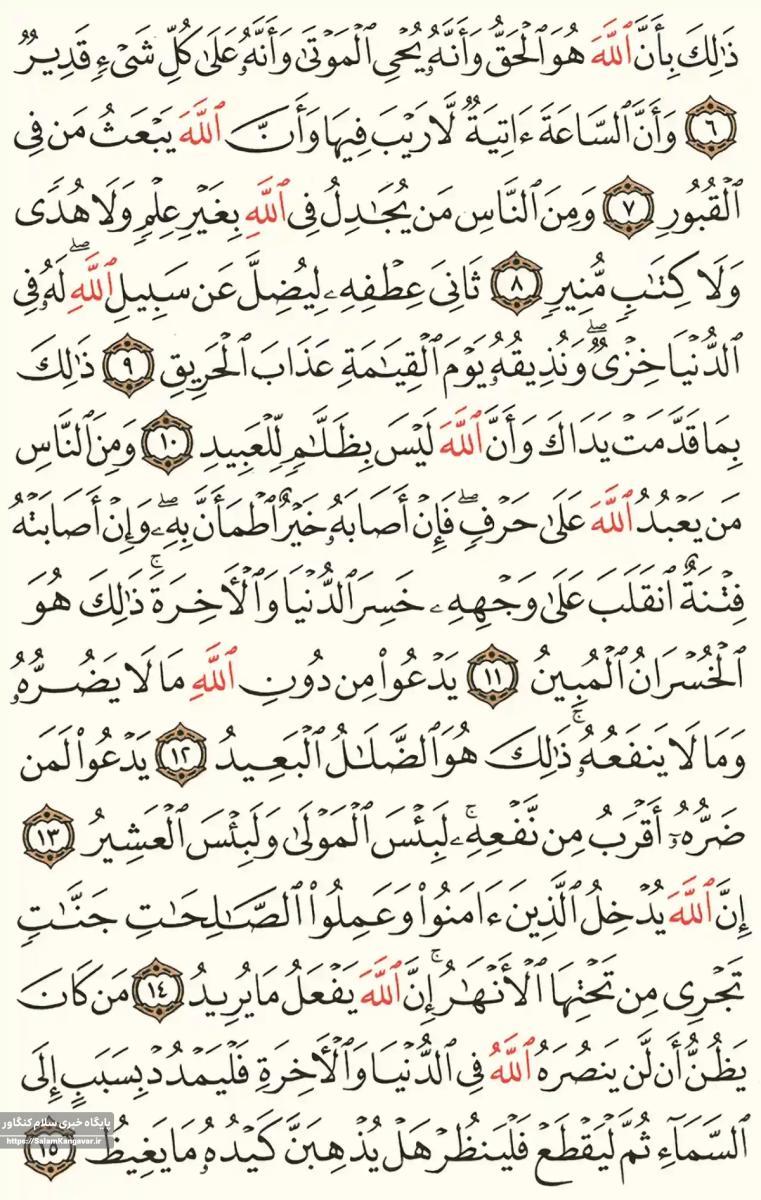 ذَٰلِكَ بِأَنَّ ٱللَّهَ هُوَ ٱلْحَقُّ وَأَنَّهُۥ يُحْىِ ٱلْمَوْتَىٰ وَأَنَّهُۥ عَلَىٰ كُلِّ شَىْءٍ قَدِيرٌ
﴿٦﴾ وَأَنَّ ٱلسَّاعَةَ ءَاتِيَةٌ لَّا رَيْبَ فِيهَا وَأَنَّ ٱللَّهَ يَبْعَثُ مَن فِى
ٱلْقُبُورِ ﴿٧﴾ وَمِنَ ٱلنَّاسِ مَن يُجَٰدِلُ فِى ٱللَّهِ بِغَيْرِ عِلْمٍ وَلَا هُدًى
وَلَا كِتَٰبٍ مُّنِيرٍ ﴿٨﴾ ثَانِىَ عِطْفِهِۦ لِيُضِلَّ عَن سَبِيلِ ٱللَّهِۖ لَهُۥ فِى
ٱلدُّنْيَا خِزْىٌۖ وَنُذِيقُهُۥ يَوْمَ ٱلْقِيَٰمَةِ عَذَابَ ٱلْحَرِيقِ ﴿٩﴾ ذَٰلِكَ
بِمَا قَدَّمَتْ يَدَاكَ وَأَنَّ ٱللَّهَ لَيْسَ بِظَلَّٰمٍ لِّلْعَبِيدِ ﴿١٠﴾ وَمِنَ ٱلنَّاسِ
مَن يَعْبُدُ ٱللَّهَ عَلَىٰ حَرْفٍۖ فَإِنْ أَصَابَهُۥ خَيْرٌ ٱطْمَأَنَّ بِهِۦۖ وَإِنْ أَصَابَتْهُ
فِتْنَةٌ ٱنقَلَبَ عَلَىٰ وَجْهِهِۦ خَسِرَ ٱلدُّنْيَا وَٱلْأَخِرَةَۚ ذَٰلِكَ هُوَ
ٱلْخُسْرَانُ ٱلْمُبِينُ ﴿١١﴾ يَدْعُوا۟ مِن دُونِ ٱللَّهِ مَا لَا يَضُرُّهُۥ
وَمَا لَا يَنفَعُهُۥۚ ذَٰلِكَ هُوَ ٱلضَّلَٰلُ ٱلْبَعِيدُ ﴿١٢﴾ يَدْعُوا۟ لَمَن
ضَرُّهُۥٓ أَقْرَبُ مِن نَّفْعِهِۦۚ لَبِئْسَ ٱلْمَوْلَىٰ وَلَبِئْسَ ٱلْعَشِيرُ ﴿١٣﴾
إِنَّ ٱللَّهَ يُدْخِلُ ٱلَّذِينَ ءَامَنُوا۟ وَعَمِلُوا۟ ٱلصَّٰلِحَٰتِ جَنَّٰتٍ
تَجْرِى مِن تَحْتِهَا ٱلْأَنْهَٰرُۚ إِنَّ ٱللَّهَ يَفْعَلُ مَا يُرِيدُ ﴿١٤﴾ مَن كَانَ
يَظُنُّ أَن لَّن يَنصُرَهُ ٱللَّهُ فِى ٱلدُّنْيَا وَٱلْأَخِرَةِ فَلْيَمْدُدْ بِسَبَبٍ إِلَى
ٱلسَّمَآءِ ثُمَّ لْيَقْطَعْ فَلْيَنظُرْ هَلْ يُذْهِبَنَّ كَيْدُهُۥ مَا يَغِيظُ ﴿١٥﴾
پایگاه خبری سلام کنگاور
https://SalamKangavar.ir